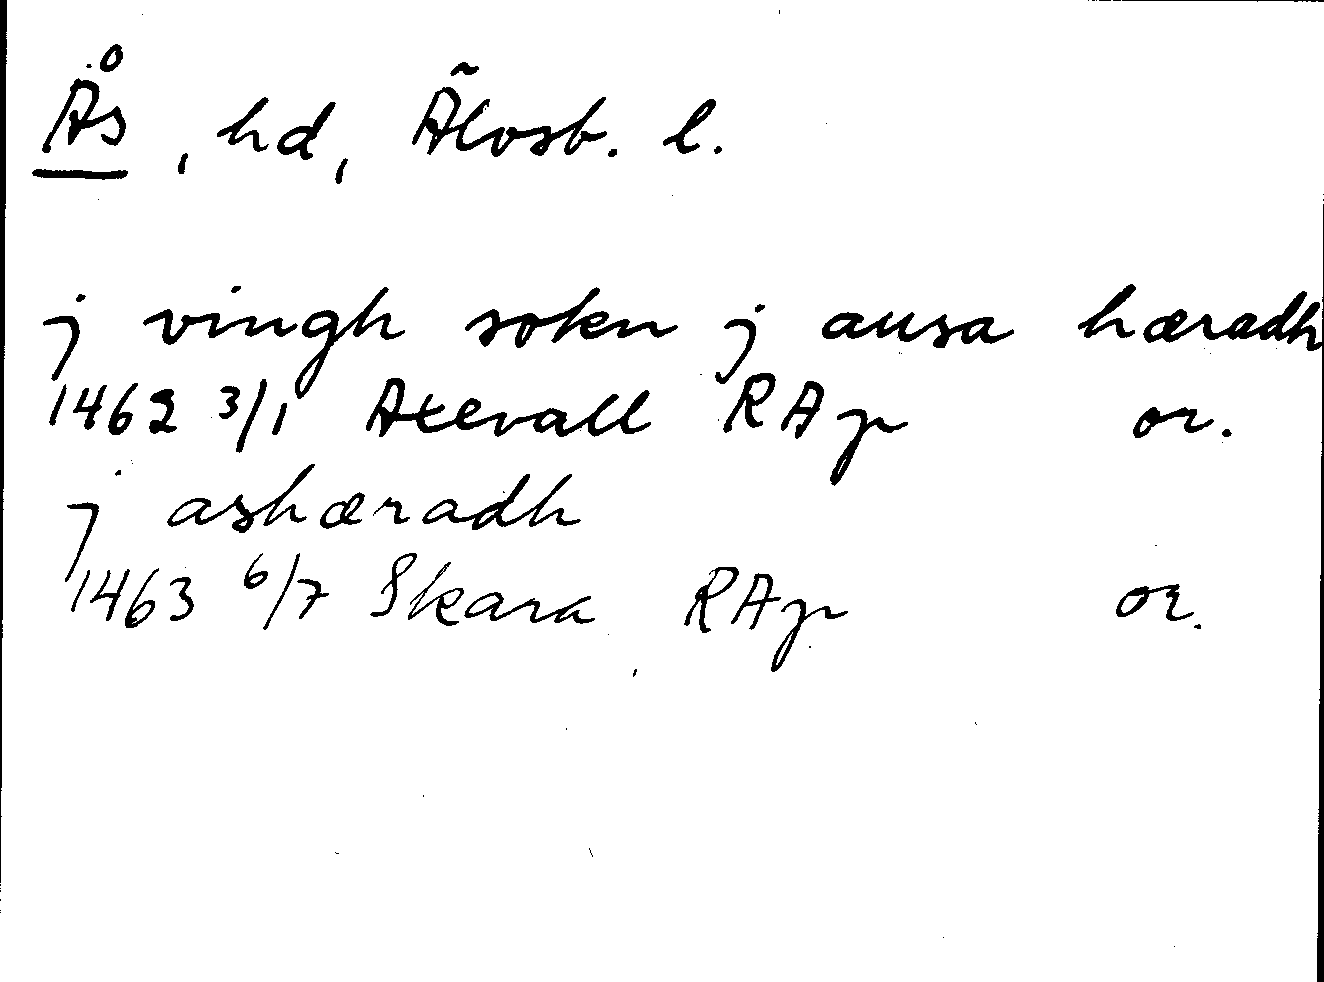 Ås, hd, Älvsb. l.
j vingh sokn j ausa hæradh
1462 3/1 Axevall RAp or.
j ashæradh
1463 6/7 Skara RAp or.